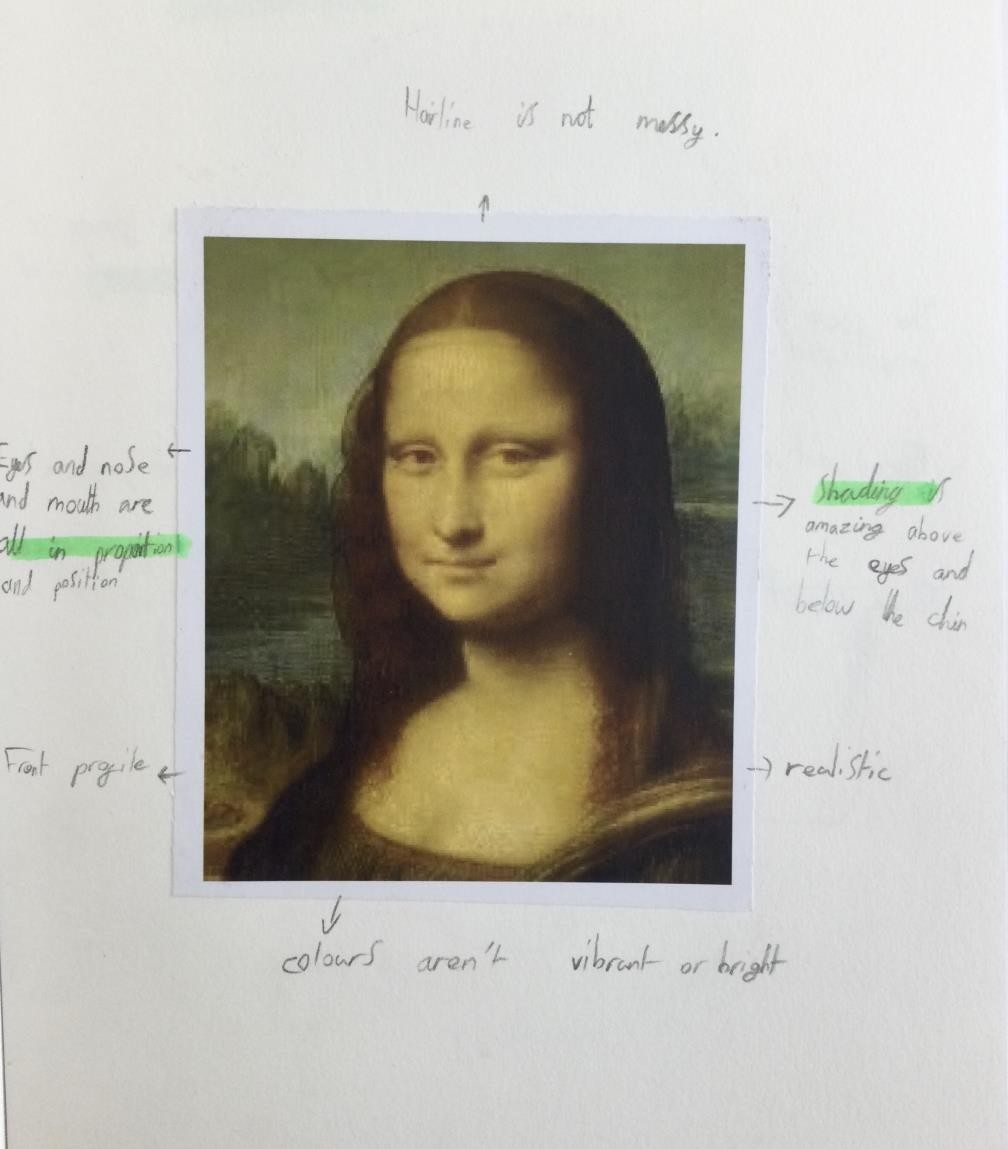 Hairline is not messy.
Eyes and nose
and mouth are
all in propotion
and position
Shading is
amazing above
the eyes and
below the chin
Front profile
realistic
colours aren't vibrant or bright